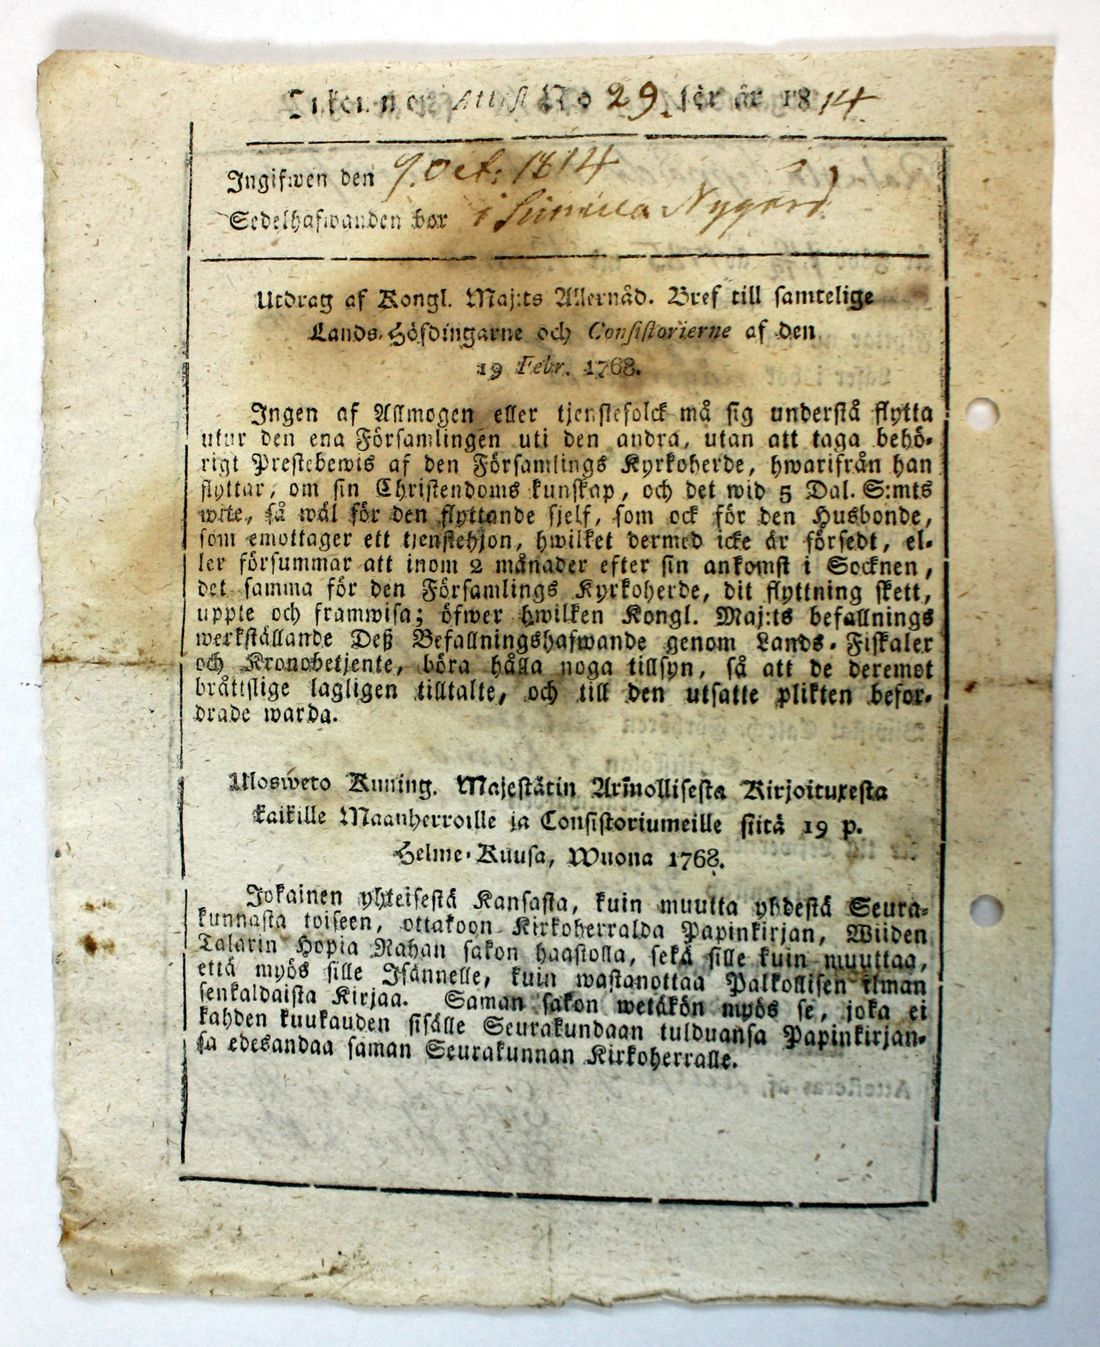 No 29. för år 1814.
Ingifwen den 9. Oct: 1814
Sedelhafwanden bor i Nygård
Utdrag af Kongl. Maj:ts Allernåd. Bref till samtelige
Lands-Höfdingarne och Consistorierne af den
19 Febr. 1768.
Ingen af Allmogen eller tjenstefolck må sig understå flytta
utur den ena Församlingen uti den andra, utan att taga behö-
rigt Prestebewis af den Församlings Kyrkoherde, hwarifrån han
flyttar, om sin Christendoms kunskap, och det wid 5 Dal. S:mts
wite, så wäl för den flyttande sjelf, som ock för den Husbonde,
som emottager ett tjenstehjon, hwilket dermed icke är försedt, el-
ler försummar att inom 2 månader efter sin ankomst i Socknen,
det samma för den Församlings Kyrkoherde, dit flyttning skett,
uppte och framwisa; öfwer hwilken Kongl. Maj:ts befallnings
werkställande Deß Befallningshafwande genom Lands-Fiskaler
och Kronobetjente, böra hålla noga tillsyn, så att de deremot
bråttslige lagligen tilltalte, och till den utsatte plikten befor-
drade warda.
Ulosweto Kuning. Majestätin Armollisesta Kirjoituxesta
kaikille Maanherroille ja Consistoriumeille siitä 19 p.
Helme-Kuusa, Wuona 1768.
Jokainen yhteisestä Kansasta, kuin muutta yhdestä Seura-
kunnasta toiseen, ottakoon Kirkoherralda Papinkirjan, Wiiden
Talarin Hopia Rahan sakon haastolla, sekä sille kuin muuttaa,
että myös sille Isännelle, kuin wastanottaa Palkollisen ilman
senkaldaista Kirjaa. Saman sakon wetäkön myös se, joka ei
kahden kuukauden sisälle Seurakundaan tulduansa Papinkirjan-
sa edesandaa saman Seurakunnan Kirkoherralle.